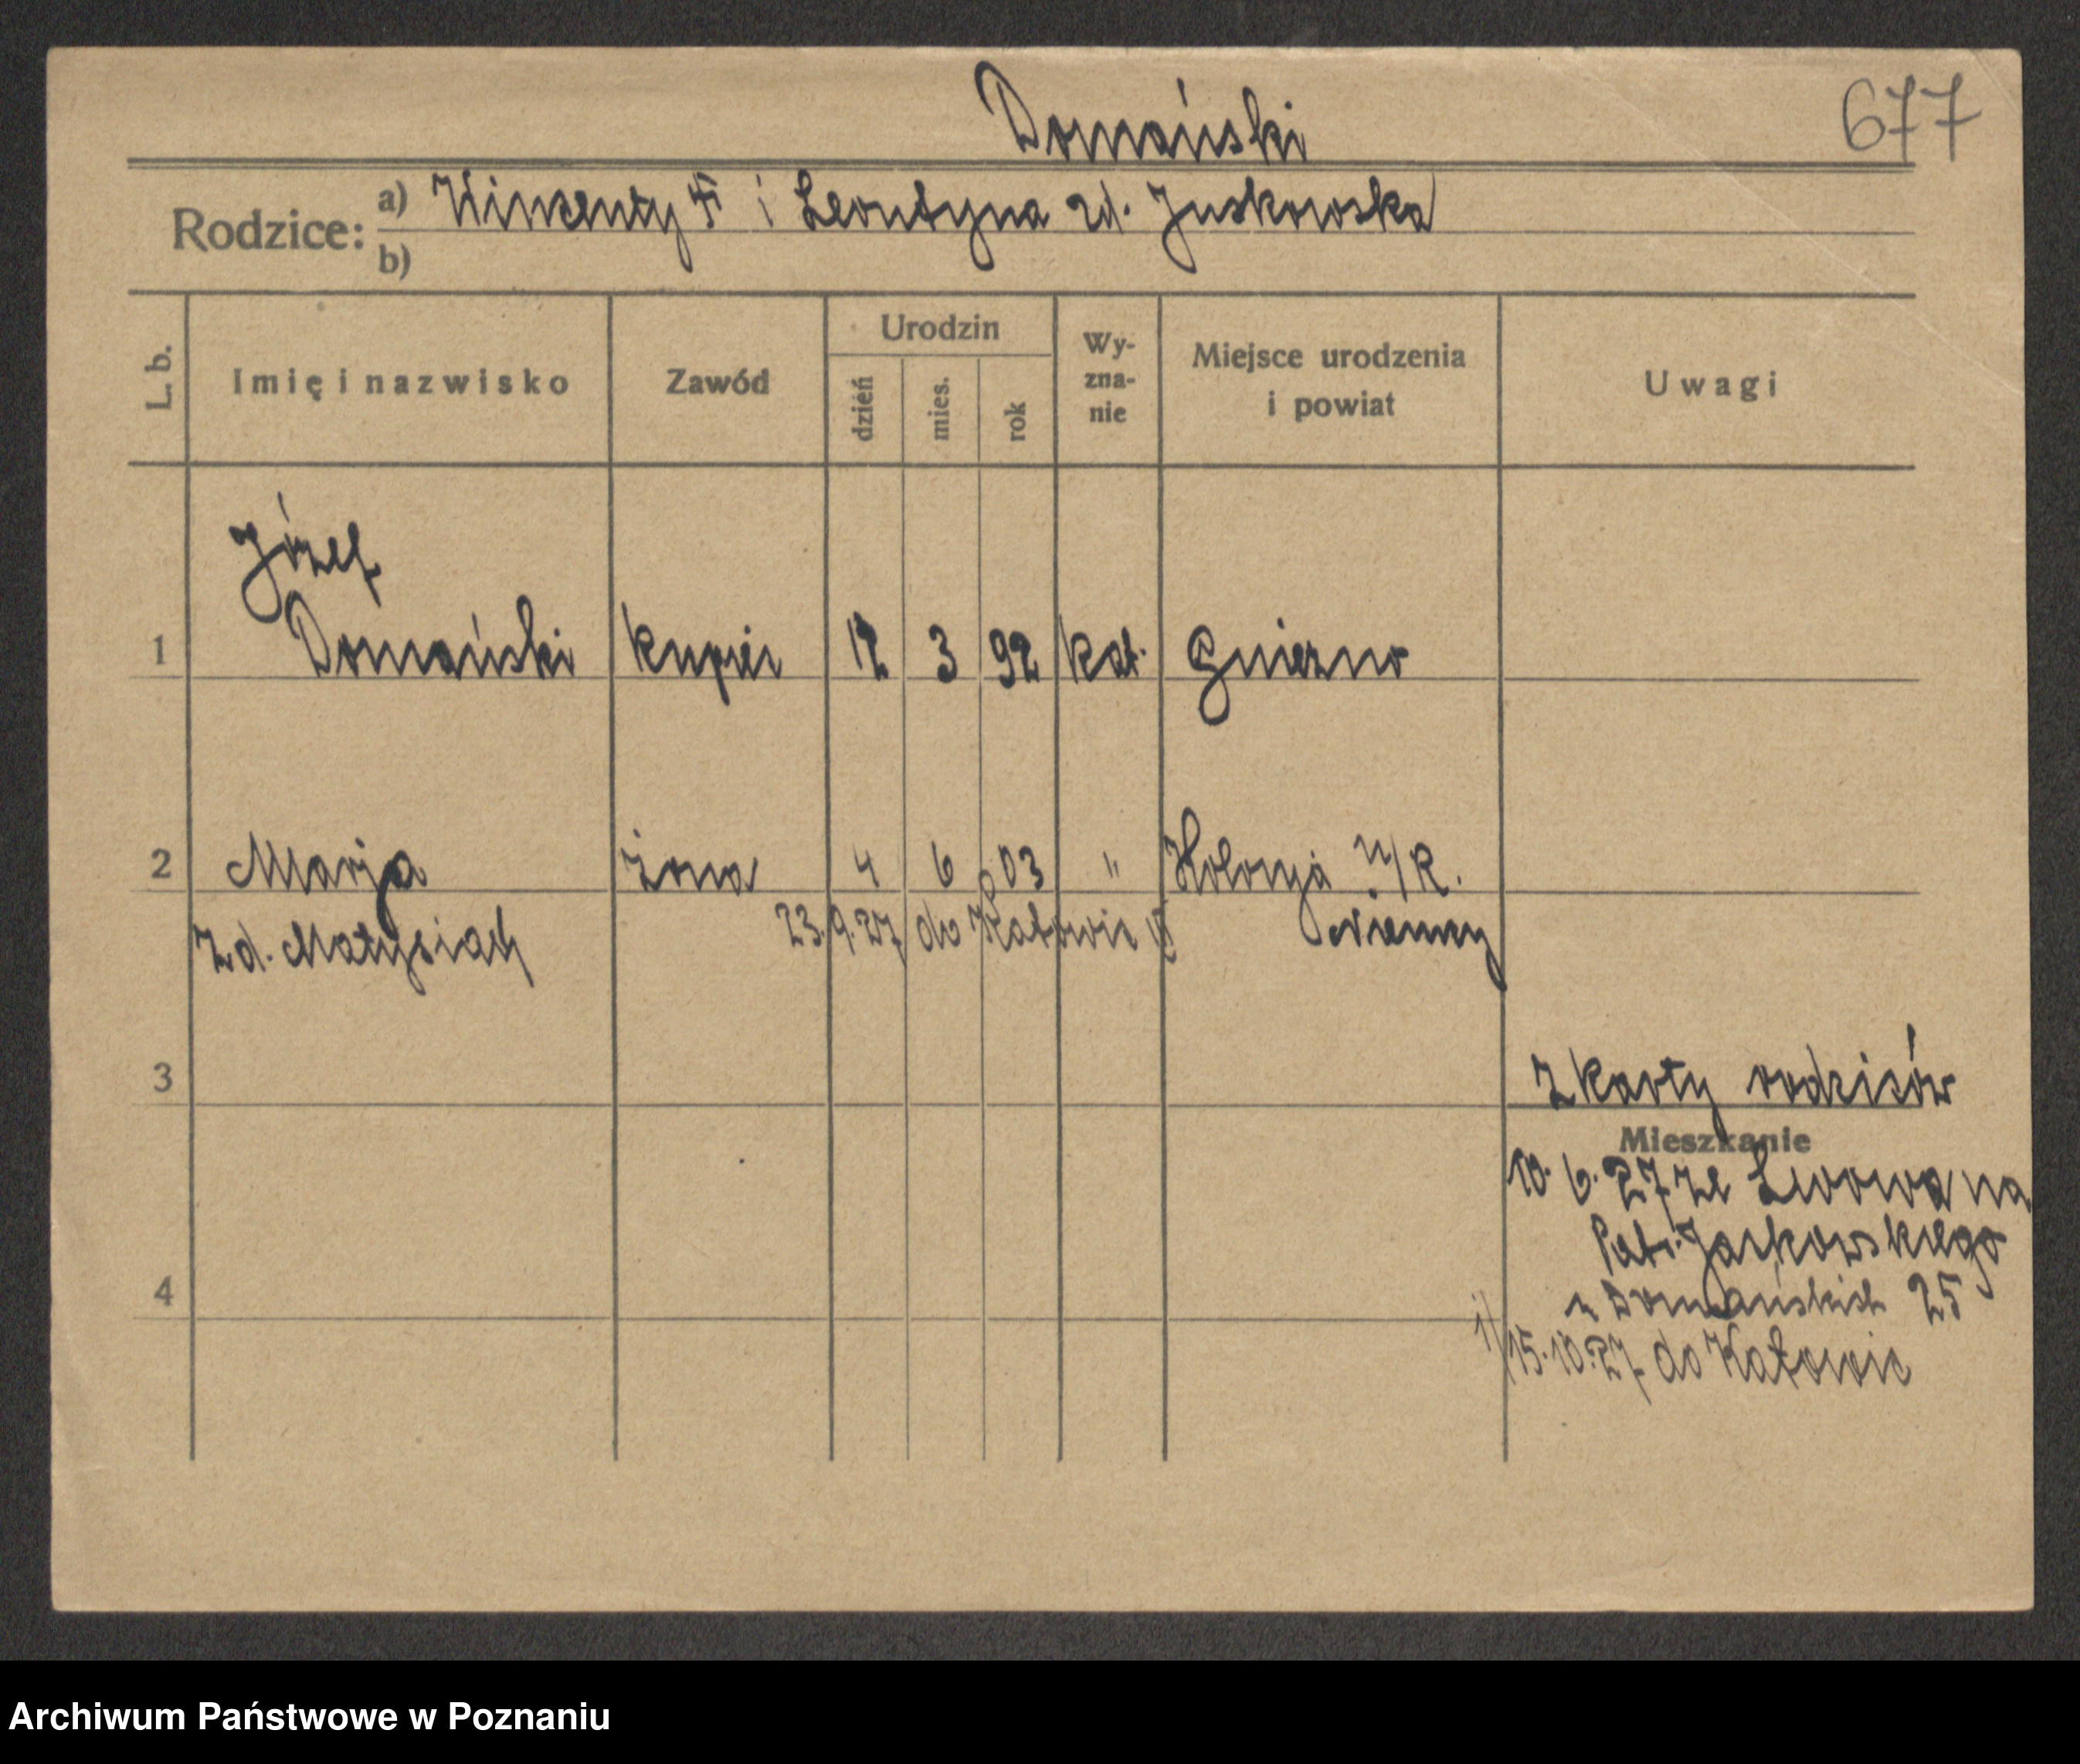 Domański
677
Rodzice:
a) Wincenty i Leontyna zd. Juskowska
b)
L. b.
Imię i nazwisko
Zawód
Urodzin
dzień
mies.
rok
Wy-
zna-
nie
Miejsce urodzenia
i powiat
Uwagi
Józef
1 Domański kupiec 12 3 92 kat. Gniezno
2 Marja żona 4 6 03 " Kolonja n/R.
zd. Matysiak 23.9.27 do Katowic Niemcy
3 z karty rodziców
Mieszkanie
10.6.27 ze Lwowa na
Patr. Jackowskiego
4 u Domańskich 25
1/ 15.10.27 do Katowic
Archiwum Państwowe w Poznaniu